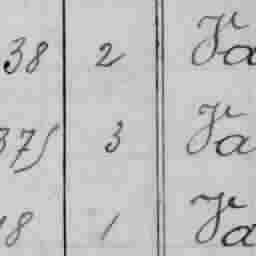 38 2 Ja
375 3 Ja
18 1 Ja